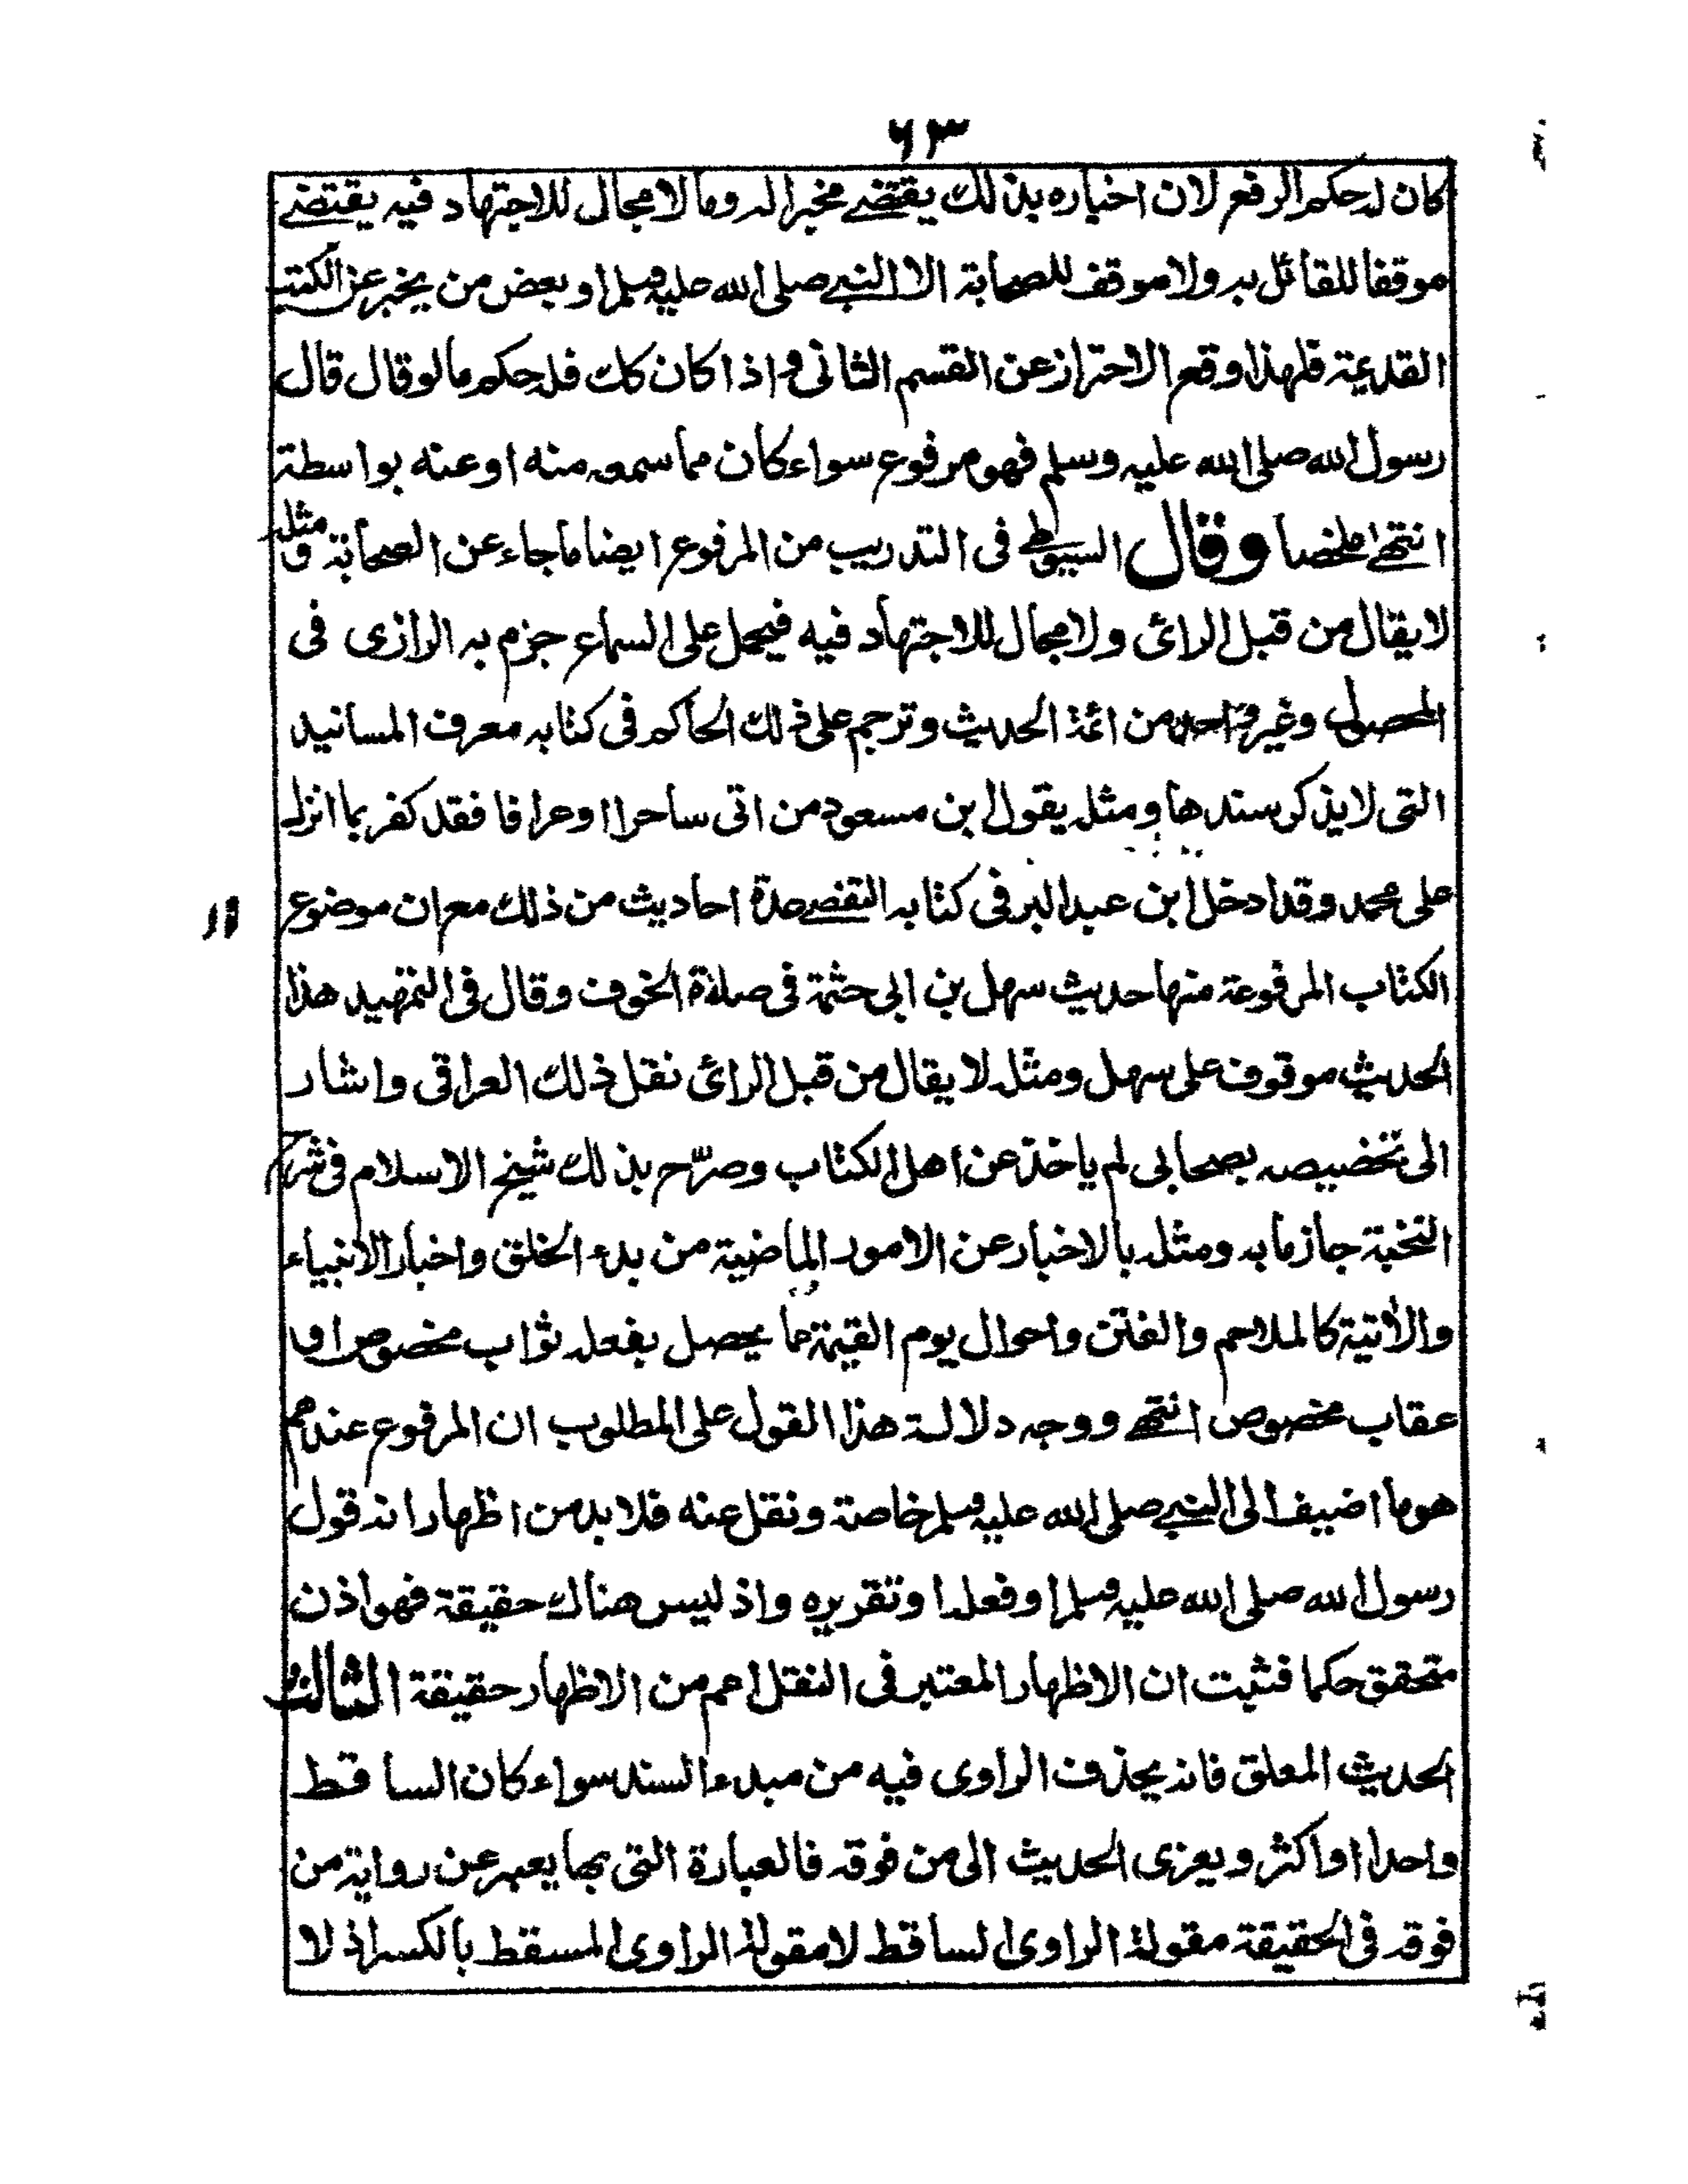 ٦٣
كان له حكم الرفع لان اخباره بذلك يقتضے مخبرا له وما لا مجال للاجتهاد فيه يقتضے
موقفا للقائل به ولا موقف للصحابة الا النبے صلى الله عليه وسلم او بعض من يخبر عن الكتب
القديمة فلهذا وقع الاحتراز عن القسم الثانى و اذا كان كك فله حكم ما لو قال قال
رسول الله صلى الله عليه وسلم فهو مرفوع سواء كان مما سمعه منه او عنه بواسطة
انتهے ملخصا وقال السيوطے فى التدريب من المرفوع ايضا ما جاء عن الصحابة و مثله
لا يقال من قبل الرائ ولا مجال للاجتهاد فيه فيحمل على السماع جزم به الرازى فى
المحصول وغير واحد من ائمة الحديث وترجم على ذلك الحاكم فى كتابه معرفة المسانيد
التى لا يذكر سندها ومثله بقول ابن مسعود من اتى ساحرا او عرافا فقد كفر بما انزل
على محمد وقد ادخل ابن عبد البر فى كتابه التقصے عدة احاديث من ذلك مع ان موضوع
الكتاب المرفوعة منها حديث سهل بن ابى حثمة فى صلاة الخوف وقال فى التمهيد هذا
الحديث موقوف على سهل ومثله لا يقال من قبل الرائ نقل ذلك العراقى واشار
الى تخصيصه بصحابى لم ياخذ عن اهل الكتاب وصرّح بذلك شيخ الاسلام فى شرح
النخبة جازما به ومثله بالاخبار عن الامور الماضية من بدء الخلق واخبار الانبياء
والاٰتية كالملاحم والفتن واحوال يوم القيمة عما يحصل بفعله ثواب مخصوص او
عقاب مخصوص انتهے ووجه دلالة هذا القول على المطلوب ان المرفوع عندهم
هو ما اضيف الى النبے صلى الله عليه وسلم خاصة ونقل عنه فلا بد من اظهار انه قول
رسول الله صلى الله عليه وسلم او فعله او تقريره واذ ليس هناك حقيقة فهو اذن
متحقق حكما فثبت ان الاظهار المعتبر فى النقل اعم من الاظهار حقيقة الثالث
الحديث المعلق فانه يحذف الراوى فيه من مبدء السند سواء كان الساقط
واحدا او اكثر ويعزى الحديث الى من فوقه فالعبارة التى بها يعبر عن رواية من
فوقه فى الحقيقة مقولة الراوى الساقط لا مقولة الراوى المسقط بالكسر اذ لا